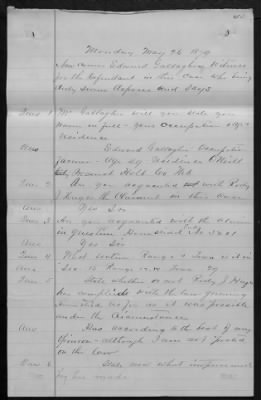 Monday May 26 1879
Now comes Edward Gallagher a Witness
for the Defendant in this Case who being
duly sworn deposes and says
Ques 1 Mr Gallagher will you state your
name in full - your occupation age &
residence
Ans Edward Gallagher Occupation
farmer - Age 29 Residence O'Neill
City Holt Co Neb
Ques 2 Are you acquainted with
J the Claimant in this case
Ans Yes Sir
Ques 3 Are you acquainted with the claim
in question Homestead No
Ans Yes Sir
Ques 4 What section Range & Town is it in
Ans Sec 15 Range Town 29
Ques 5 State whether or not J
has complied with the law governing
as far as it was possible
under the circumstances
Ans Has according to the best of my
Opinion - although I am not posted
on the law
Ques 6 State now what improvements
he has made